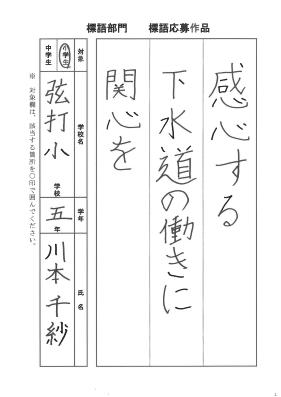 標語部門　標語応募作品
感心する
下水道の働きに
関心を
対象
小学生
中学生
学校名
弦打小
学校
学年
五
年
氏名
川本千紗
※ 対象欄は、該当する箇所を〇印で囲んでください。